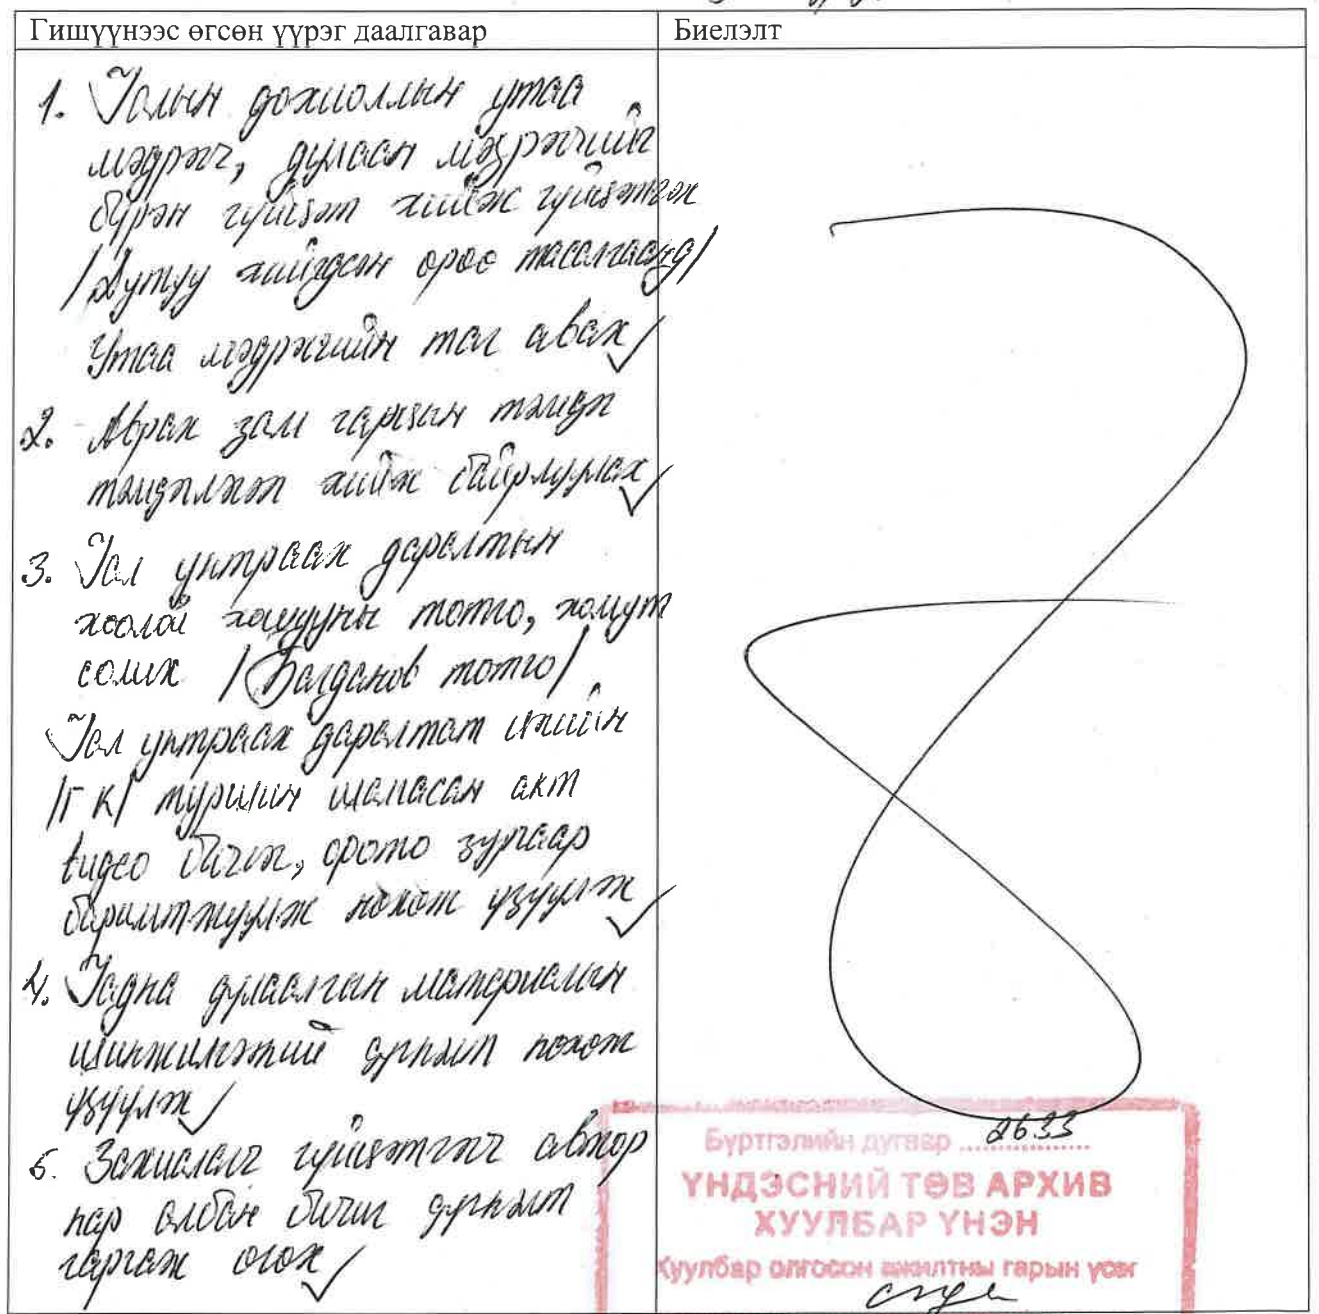 Гишүүнээс өгсөн үүрэг даалгавар
Биелэлт
1. Галын дохиоллын утаа
мэдрэгч, дулаан мэдрэгчийг
бүрэн гүйцэт хийж гүйцэтгэх
/Дутуу хийгдсэн өрөө тасалгаанд/
Утаа мэдрэгчийн таг авах ✓
2. Аврах зам гарцын тэмдэг
тэмдэглэгээ хийж байрлуулах ✓
3. Гал унтраах даралтын
хоолой хошууны тотго, хомут
солих /Багданов тотго/
Гал унтраах даралтат
/ГК/ туршин шалгасан акт
видео бичлэг, фото зургаар
баримтжуулж нөхөж үзүүлэх ✓
4. Гадна дулаалгын материалын
шинжилгээний дүгнэлт нөхөж
үзүүлэх ✓
5. Захиалагч гүйцэтгэгч автор
нар албан бичиг дүгнэлт
гаргаж өгөх ✓
Бүртгэлийн дугаар 2633
ҮНДЭСНИЙ ТӨВ АРХИВ
ХУУЛБАР ҮНЭН
Хуулбар олгосон ажилтны гарын үсэг